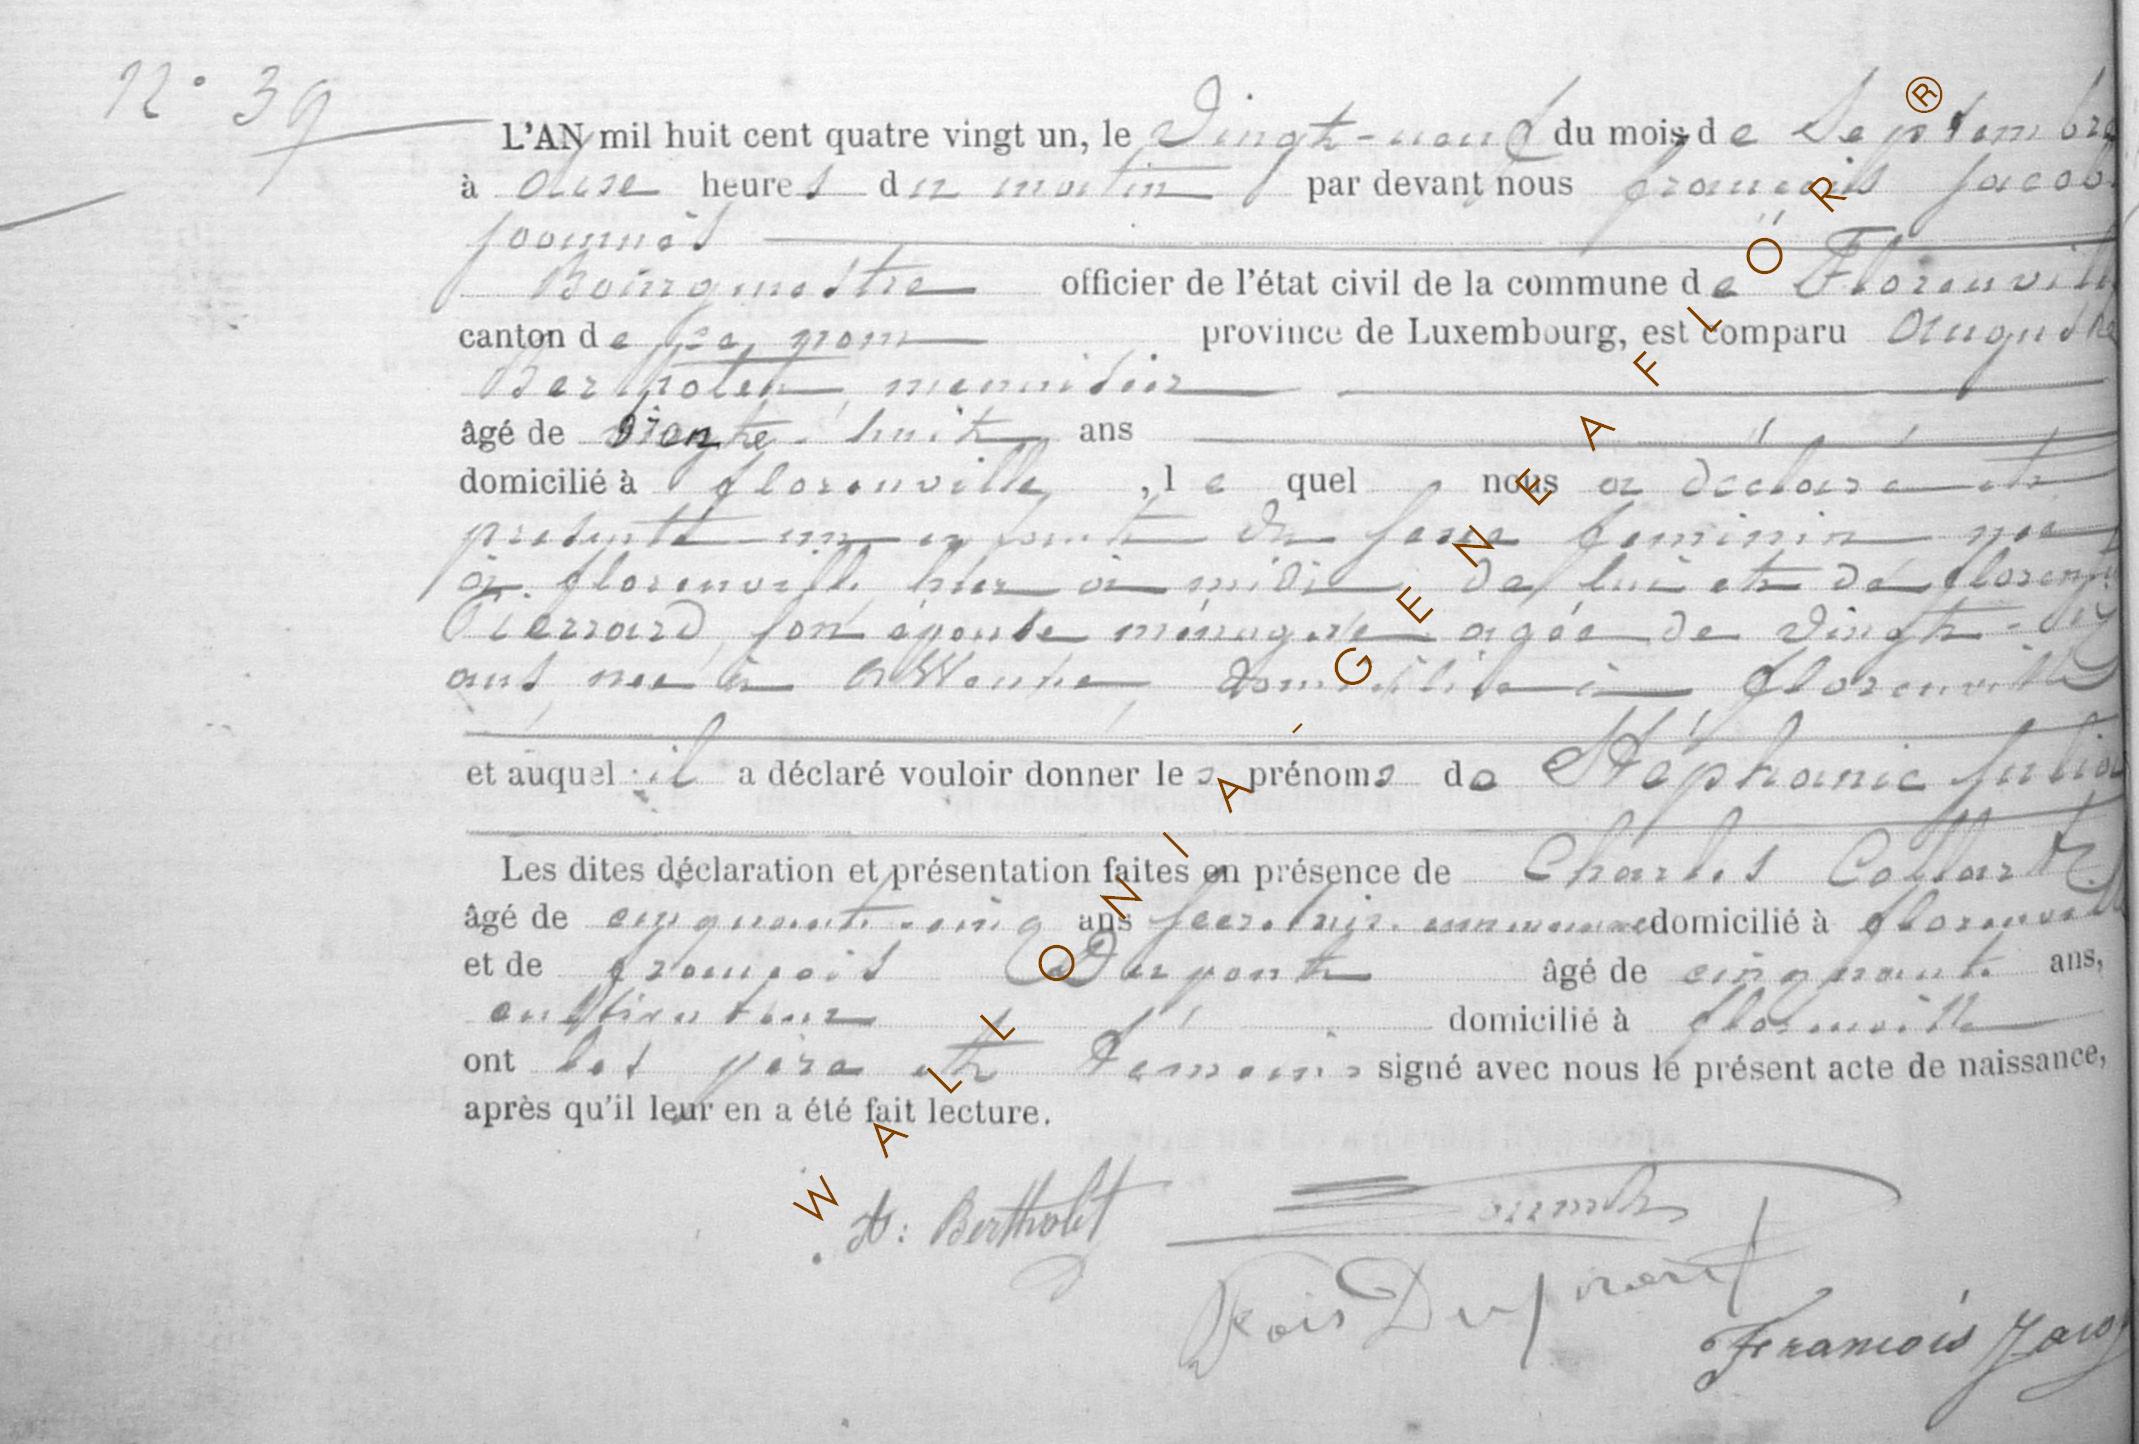 N° 39
L'AN mil huit cent quatre vingt un, le Vingt-neuf du mois de Septembre
à onze heures du matin par devant nous françois Jacob
Bourgmestre officier de l'état civil de la commune de Florenville
canton de ce nom province de Luxembourg, est comparu Auguste
Bertholet, menuisier
âgé de vingt-huit ans
domicilié à florenville, le quel nous a déclaré et
présenté un enfant du sexe feminin née
à florenville hier à midi de lui et de
Pierrard, son épouse ménagère agée de vingt-
ans née à domiciliée à florenville
et auquel il a déclaré vouloir donner les prénoms de Stéphanie Julia
Les dites déclaration et présentation faites en présence de Charles Collard
âgé de cinquante-cinq ans secrétaire communal domicilié à florenville
et de françois Dupont âgé de cinquante ans,
cultivateur domicilié à florenville
ont les père et témoins signé avec nous le présent acte de naissance,
après qu'il leur en a été fait lecture.
A: Bertholet
Fcois Dupont
François Jacob
WALLONIA-GENEAFLÖR®